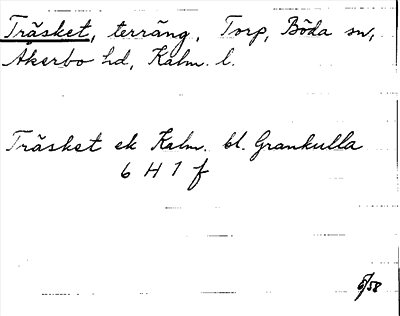 Träsket, terräng, Torp, Böda sn,
Åkerbo hd, Kalm. l.
Träsket ek Kalm. bl. Grankulla
6 H 1 f
6/58